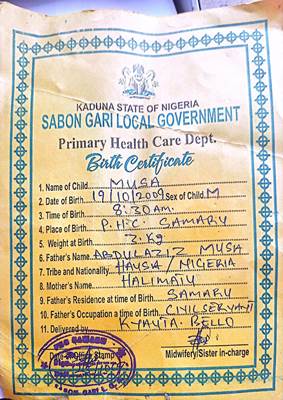 KADUNA STATE OF NIGERIA
SABON GARI LOCAL GOVERNMENT
Primary Health Care Dept.
Birth Certificate
1. Name of Child MUSA
2. Date of Birth 19/10/2009 Sex of Child M
3. Time of Birth 8:30 Am.
4. Place of Birth P.H.C. SAMARU
5. Weight at Birth 3.Kg
6. Father's Name ABDULAZIZ MUSA
7. Tribe and Nationality HAUSA / NIGERIA
8. Mother's Name HALIMATU
9. Father's Residence at time of Birth SAMARU
10. Father's Occupation a time of Birth CIVIL SERVANT
11. Delivered by KYAUTA BELLO
Date & Office Stamp
Midwifery/Sister in-charge
SABON GARI L.G.